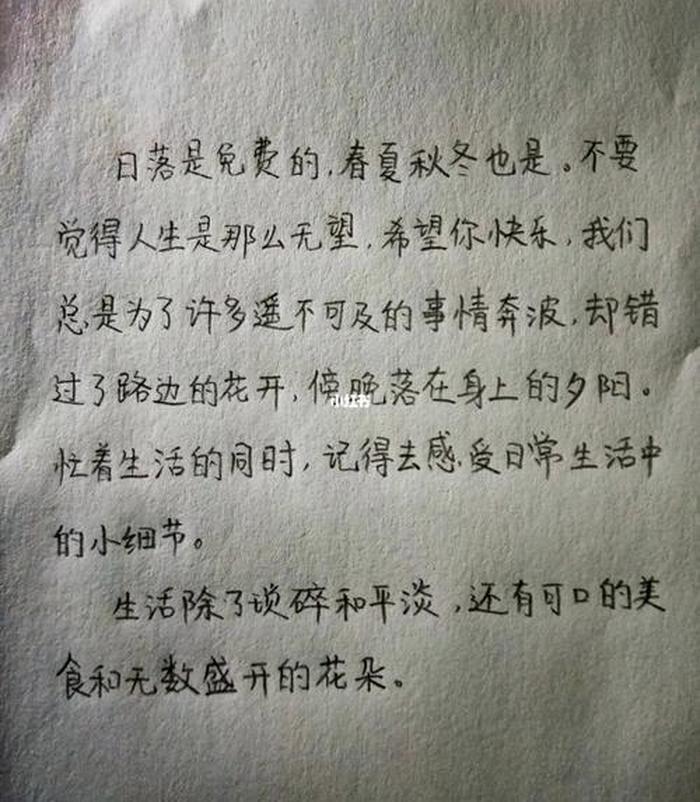 日落是免费的,春夏秋冬也是。不要
觉得人生是那么无望,希望你快乐,我们
总是为了许多遥不可及的事情奔波,却错
过了路边的花开,傍晚落在身上的夕阳。
忙着生活的同时,记得去感受日常生活中
的小细节。
生活除了琐碎和平淡,还有可口的美
食和无数盛开的花朵。
小红书